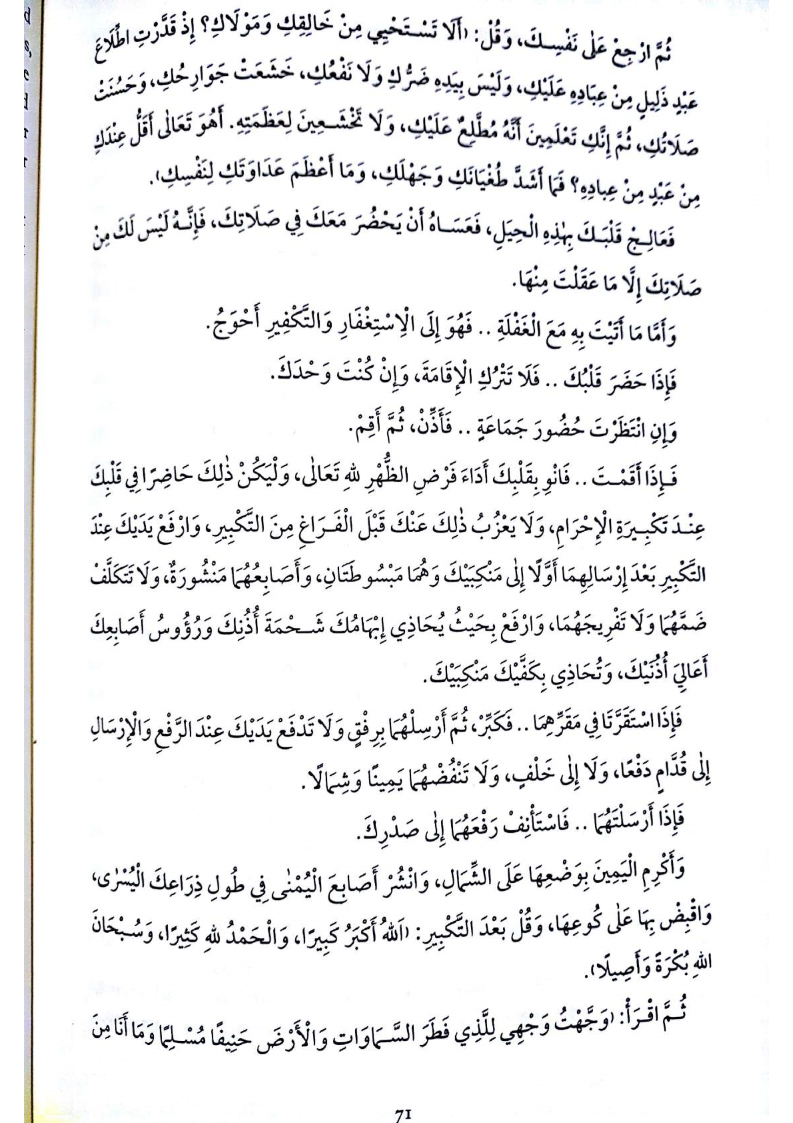 ثُمَّ ارْجِعْ عَلَى نَفْسِكَ، وَقُلْ: (أَلَا تَسْتَحْيِي مِنْ خَالِقِكِ وَمَوْلَاكِ؟ إِذْ قَدَّرْتِ اطِّلَاعَ
عَبْدٍ ذَلِيلٍ مِنْ عِبَادِهِ عَلَيْكِ، وَلَيْسَ بِيَدِهِ ضَرُّكِ وَلَا نَفْعُكِ، خَشَعَتْ جَوَارِحُكِ، وَحَسُنَتْ
صَلَاتُكِ، ثُمَّ إِنَّكِ تَعْلَمِينَ أَنَّهُ مُطَّلِعٌ عَلَيْكِ، وَلَا تَخْشَعِينَ لِعَظَمَتِهِ. أَهُوَ تَعَالَى أَقَلُّ عِنْدَكِ
مِنْ عَبْدٍ مِنْ عِبَادِهِ؟ فَمَا أَشَدَّ طُغْيَانَكِ وَجَهْلَكِ، وَمَا أَعْظَمَ عَدَاوَتَكِ لِنَفْسِكِ).
فَعَالِجْ قَلْبَكَ بِهٰذِهِ الْحِيَلِ، فَعَسَاهُ أَنْ يَحْضُرَ مَعَكَ فِي صَلَاتِكَ، فَإِنَّهُ لَيْسَ لَكَ مِنْ
صَلَاتِكَ إِلَّا مَا عَقَلْتَ مِنْهَا.
وَأَمَّا مَا أَتَيْتَ بِهِ مَعَ الْغَفْلَةِ .. فَهُوَ إِلَى الْاِسْتِغْفَارِ وَالتَّكْفِيرِ أَحْوَجُ.
فَإِذَا حَضَرَ قَلْبُكَ .. فَلَا تَتْرُكِ الْإِقَامَةَ، وَإِنْ كُنْتَ وَحْدَكَ.
وَإِنِ انْتَظَرْتَ حُضُورَ جَمَاعَةٍ .. فَأَذِّنْ، ثُمَّ أَقِمْ.
فَإِذَا أَقَمْتَ .. فَانْوِ بِقَلْبِكَ أَدَاءَ فَرْضِ الظُّهْرِ لِلّٰهِ تَعَالَى، وَلْيَكُنْ ذٰلِكَ حَاضِرًا فِي قَلْبِكَ
عِنْدَ تَكْبِيرَةِ الْإِحْرَامِ، وَلَا يَعْزُبُ ذٰلِكَ عَنْكَ قَبْلَ الْفَرَاغِ مِنَ التَّكْبِيرِ، وَارْفَعْ يَدَيْكَ عِنْدَ
التَّكْبِيرِ بَعْدَ إِرْسَالِهِمَا أَوَّلًا إِلَى مَنْكِبَيْكَ وَهُمَا مَبْسُوطَتَانِ، وَأَصَابِعُهُمَا مَنْشُورَةٌ، وَلَا تَتَكَلَّفْ
ضَمَّهُمَا وَلَا تَفْرِيجَهُمَا، وَارْفَعْ بِحَيْثُ يُحَاذِي إِبْهَامُكَ شَحْمَةَ أُذُنِكَ وَرُؤُوسُ أَصَابِعِكَ
أَعَالِيَ أُذُنَيْكَ، وَتُحَاذِي بِكَفَّيْكَ مَنْكِبَيْكَ.
فَإِذَا اسْتَقَرَّتَا فِي مَقَرِّهِمَا .. فَكَبِّرْ، ثُمَّ أَرْسِلْهُمَا بِرِفْقٍ وَلَا تَدْفَعْ يَدَيْكَ عِنْدَ الرَّفْعِ وَالْإِرْسَالِ
إِلَى قُدَّامٍ دَفْعًا، وَلَا إِلَى خَلْفٍ، وَلَا تَنْفُضْهُمَا يَمِينًا وَشِمَالًا.
فَإِذَا أَرْسَلْتَهُمَا .. فَاسْتَأْنِفْ رَفْعَهُمَا إِلَى صَدْرِكَ.
وَأَكْرِمِ الْيَمِينَ بِوَضْعِهَا عَلَى الشِّمَالِ، وَانْشُرْ أَصَابِعَ الْيُمْنَى فِي طُولِ ذِرَاعِكَ الْيُسْرَى،
وَاقْبِضْ بِهَا عَلَى كُوعِهَا، وَقُلْ بَعْدَ التَّكْبِيرِ: (اَللهُ أَكْبَرُ كَبِيرًا، وَالْحَمْدُ لِلّٰهِ كَثِيرًا، وَسُبْحَانَ
اللهِ بُكْرَةً وَأَصِيلًا).
ثُمَّ اقْرَأْ: (وَجَّهْتُ وَجْهِي لِلَّذِي فَطَرَ السَّمَاوَاتِ وَالْأَرْضَ حَنِيفًا مُسْلِمًا وَمَا أَنَا مِنَ
71